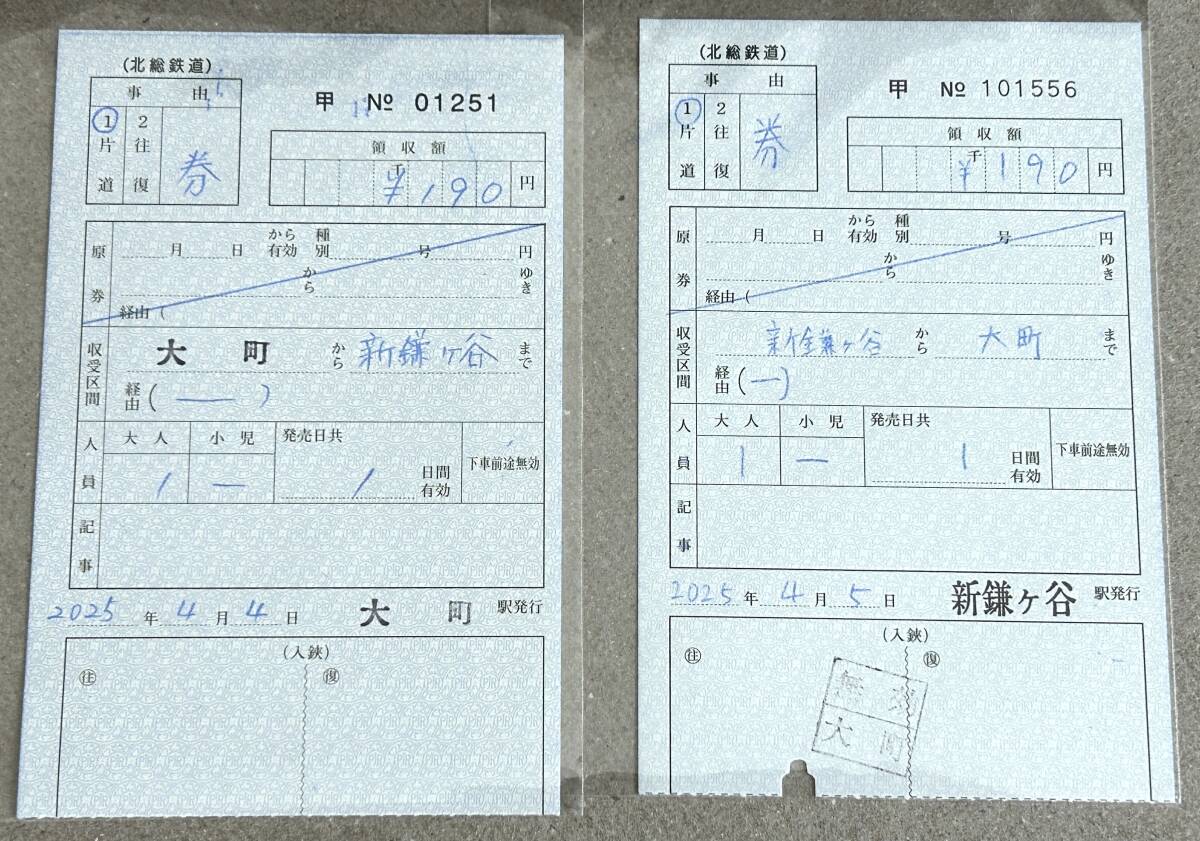 (北総鉄道)
事由
甲 № 01251
1 片道
2 往復
券
領収額
千
¥190円
原券
月 日から有効 種別 号 円
から ゆき
経由(
収受区間
大町から新鎌ヶ谷まで
経由(—)
人員
大人 小児 発売日共
1 — 1日間有効
下車前途無効
記事
2025年4月4日 大町 駅発行
(入鋏)
往 復
(北総鉄道)
事由
甲 № 101556
1 片道
2 往復
券
領収額
千
¥190円
原券
月 日から有効 種別 号 円
から ゆき
経由(
収受区間
新鎌ヶ谷から大町まで
経由(—)
人員
大人 小児 発売日共
1 — 1日間有効
下車前途無効
記事
2025年4月5日 新鎌ヶ谷 駅発行
(入鋏)
往 復
無効
大町